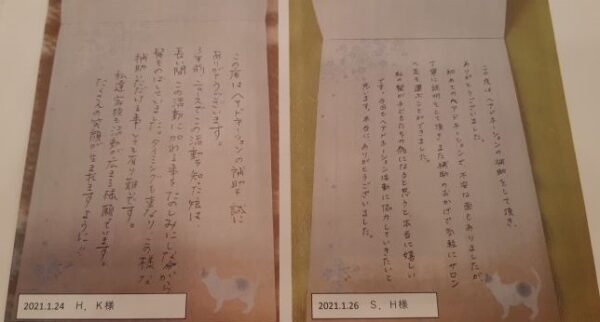 この度はヘアドネーションの補助を誠に
ありがとうございます。
3年前ニュースでこの活動を知った娘は、
長い間この活動に加われる事をたのしみにしながら
髪をのばしていました。タイミングも重なりこの様な
補助いただける事とても有り難いです。
私達家族も活動が広まる様願っています。
たくさんの笑顔が生まれますように!!
2021.1.24 H．K様
この度は、ヘアドネーションの補助をして頂き、
ありがとうございました。
初めてのヘアドネーションで、不安な面もありましたが、
丁寧に説明をして頂き、また補助のおかげで気軽にサロン
へ足を運ぶことができました。
私の髪が子どもたちの為になると思うと本当に嬉しい
です。今後もヘアドネーション活動に協力していきたいと
思います。本当にありがとうございました。
2021.1.26 S．H様